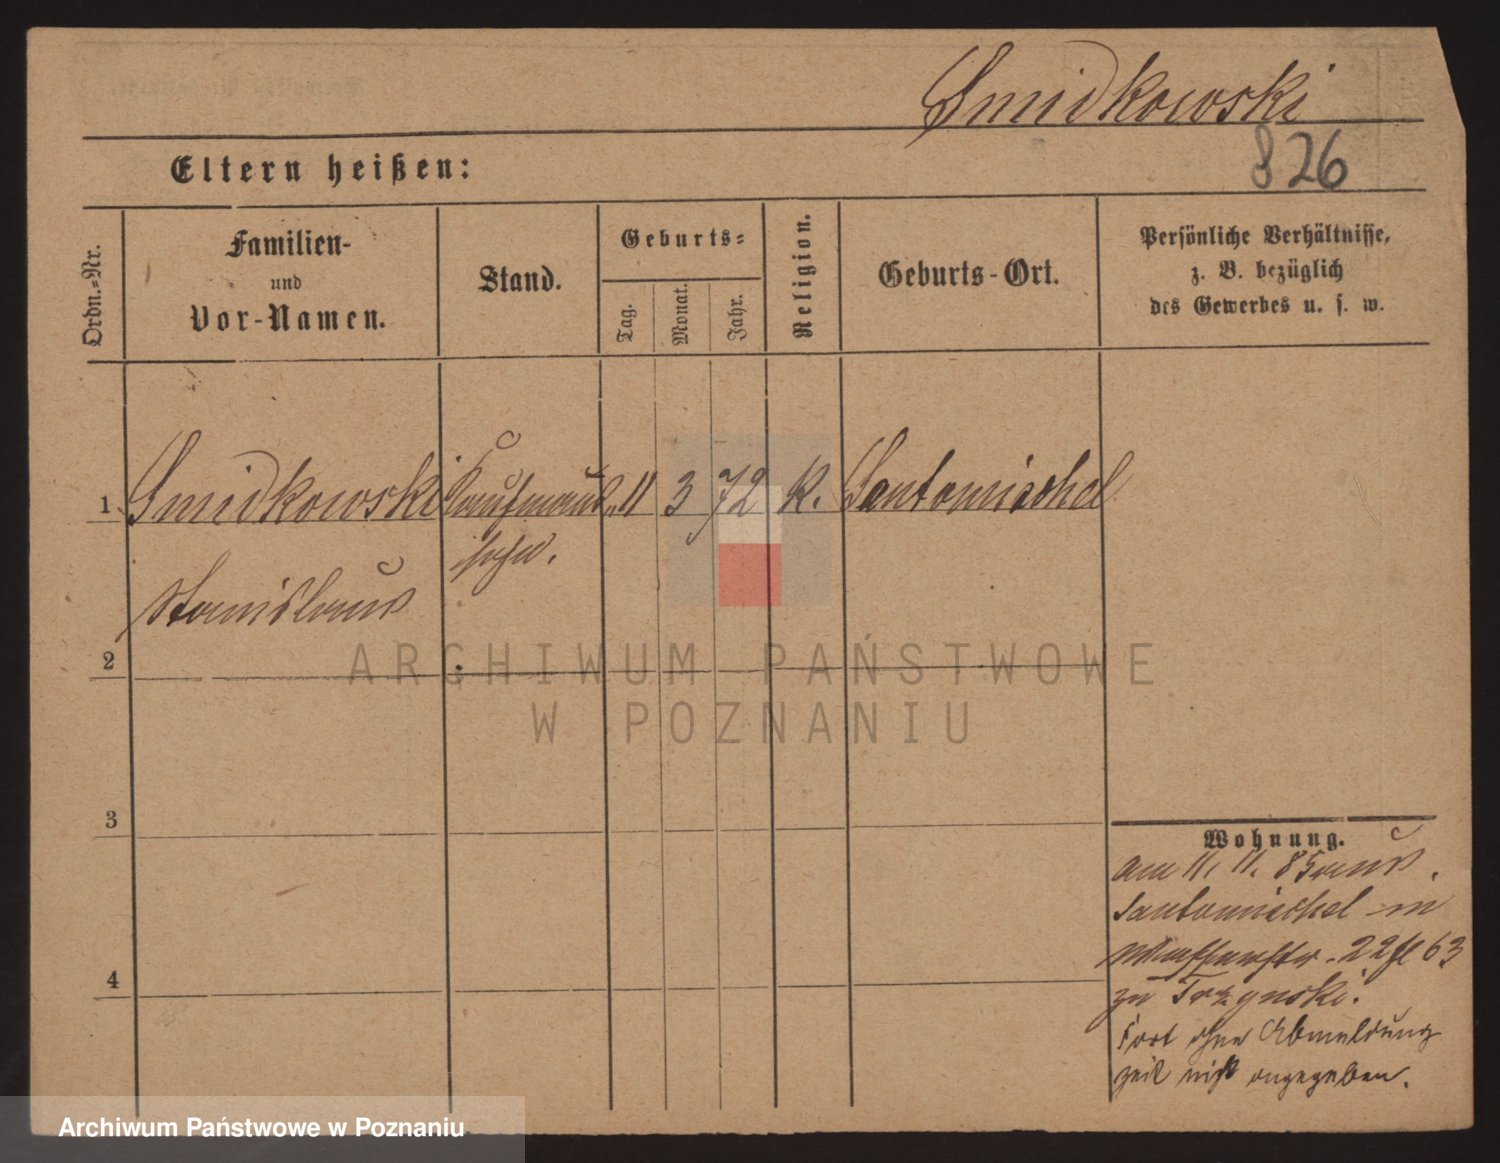 Smidkowski
826
Eltern heißen:
Ordn.-Nr.
Familien-
und
Vor-Namen.
Stand.
Geburts-
Tag.
Monat.
Jahr.
Religion.
Geburts-Ort.
Persönliche Verhältnisse,
z. B. bezüglich
des Gewerbes u. s. w.
1 Smidkowski Kaufmanns 11 3 72 K. Santomischel
sohn.
Stanislaus
2
ARCHIWUM PAŃSTWOWE
W POZNANIU
3
Wohnung.
am 11. 11. 85 aus
Santomischel in
22
63
zu Trzynski.
Fort ohne Abmeldung
zeit nicht angegeben.
4
Archiwum Państwowe w Poznaniu